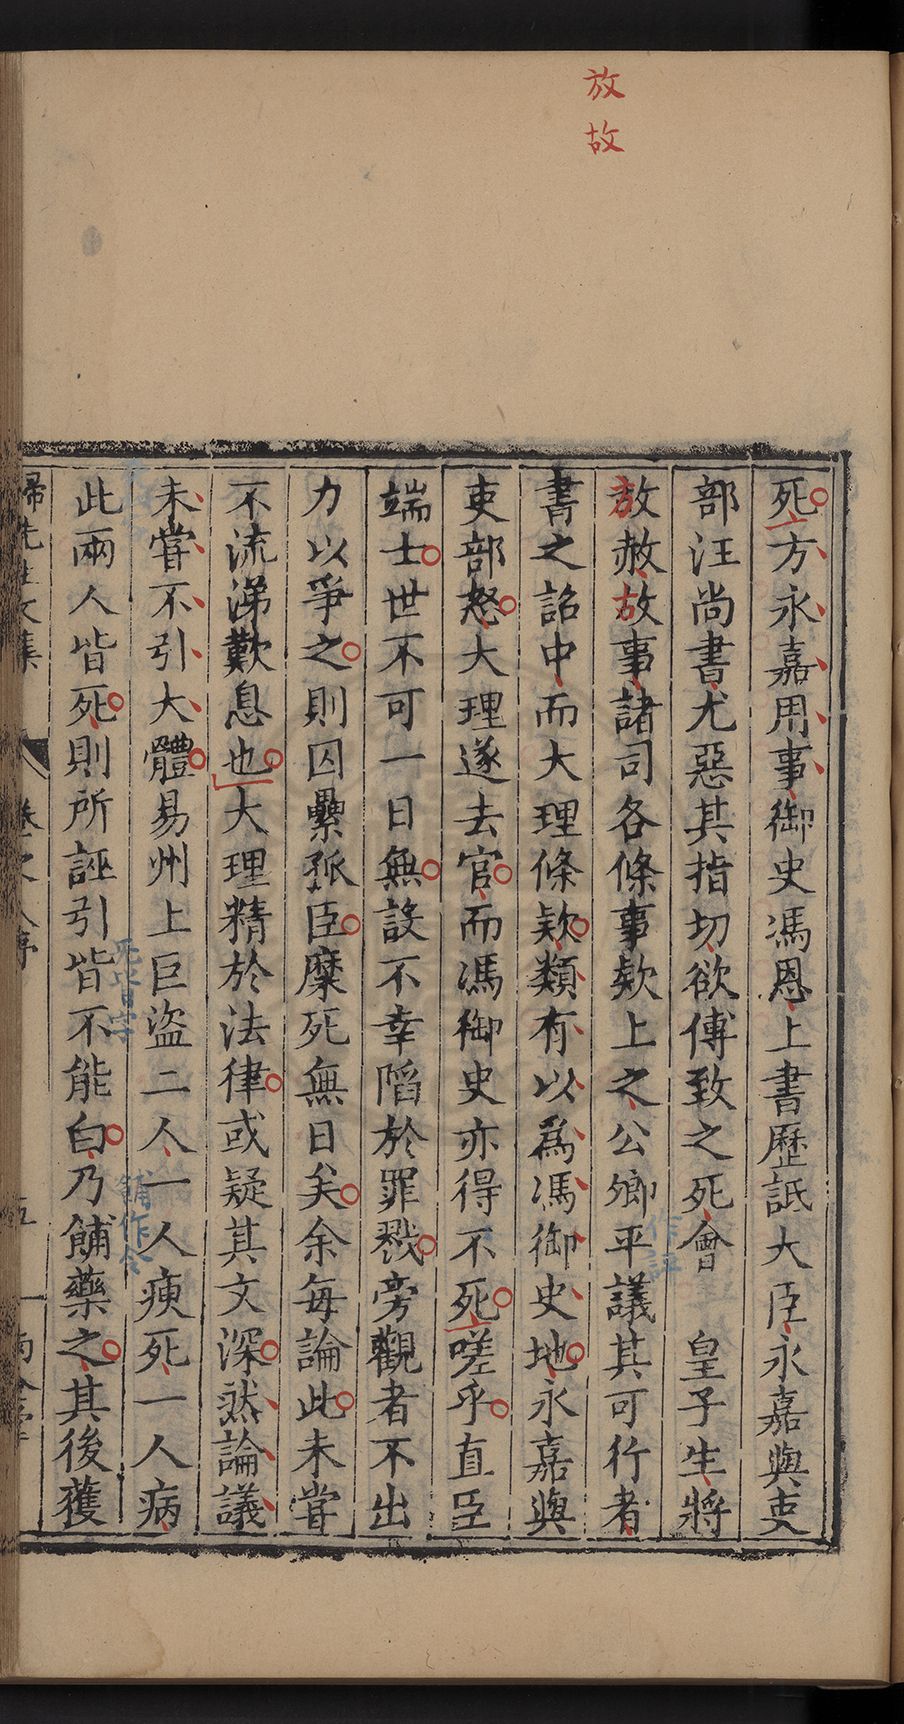 放
故
死方永嘉用事御史馮恩上書歷詆大臣永嘉與吏
部汪尚書尤惡其指切欲傅致之死會 皇子生將
放赦故事諸司各條事款上之公卿平議其可行者
書之詔中而大理條款類有以爲馮御史地永嘉與
吏部怒大理遂去官而馮御史亦得不死嗟乎直臣
端士世不可一日無設不幸䧟於罪戮旁觀者不出
力以爭之則囚纍孤臣糜死無日矣余每論此未嘗
不流涕歎息也大理精於法律或疑其文深然論議
未嘗不引大體易州上巨盜二人一人痩死一人病
此兩人皆死則所誣引皆不能白乃餔藥之其後獲